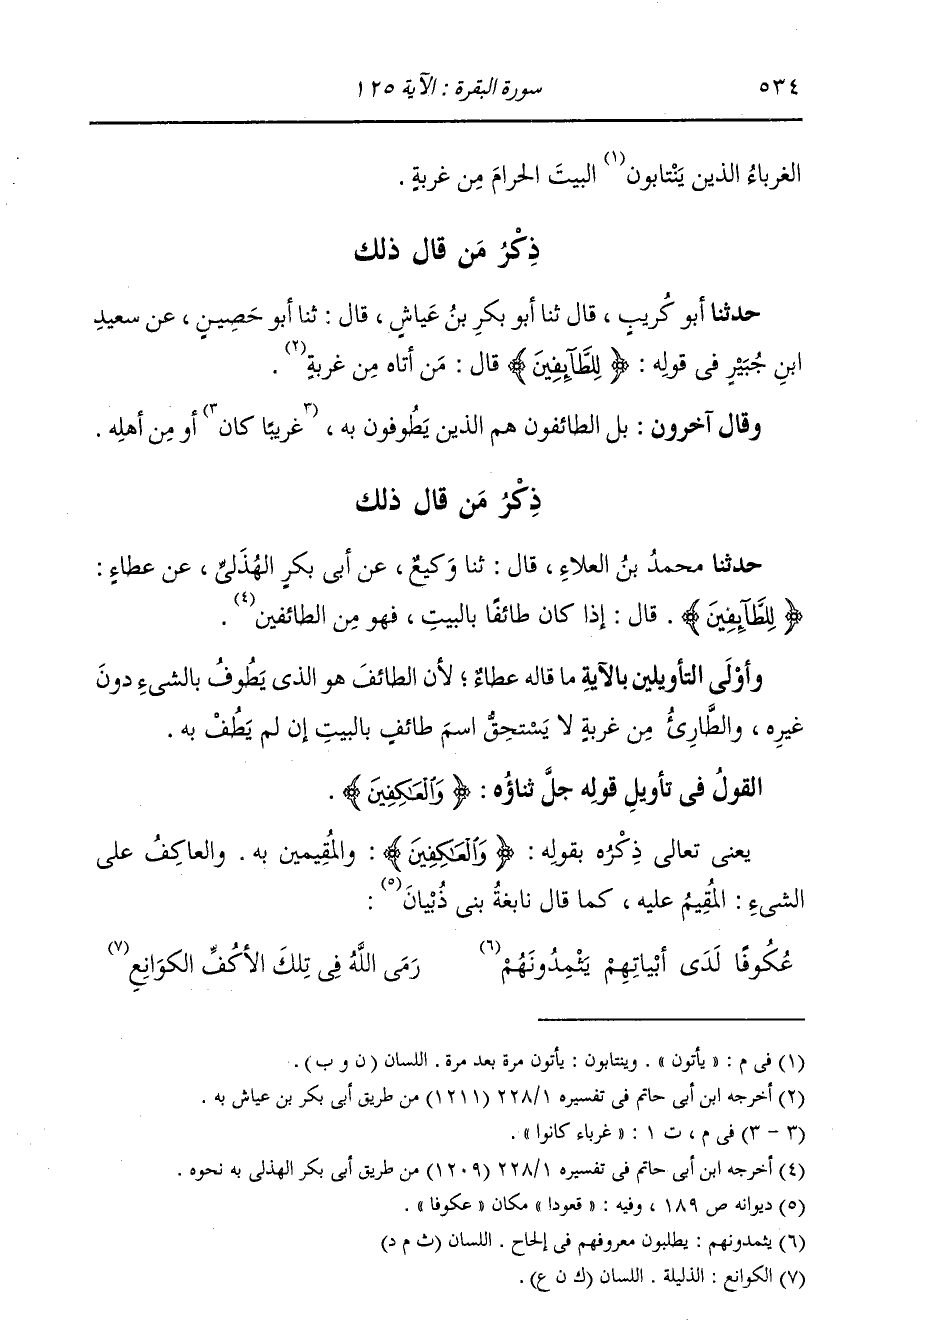 ٥٣٤ سورة البقرة : الآية ١٢٥
الغرباءُ الذين يَنْتابون(١) البيتَ الحرامَ مِن غربةٍ .
ذِكْرُ مَن قال ذلك
حدثنا أبو كُريبٍ ، قال ثنا أبو بكرِ بنُ عَياشٍ ، قال : ثنا أبو حَصِينٍ ، عن سعيدِ
ابنِ جُبَيْرٍ فى قولِه : ﴿ لِلطَّآئِفِينَ ﴾ قال : مَن أتاه مِن غربةٍ(٢) .
وقال آخرون : بل الطائفون هم الذين يَطُوفون به ، (٣غريبًا كان٣) أو مِن أهلِه .
ذِكْرُ مَن قال ذلك
حدثنا محمدُ بنُ العلاءِ ، قال : ثنا وَكيعٌ ، عن أبى بكرٍ الهُذَلىِّ ، عن عطاءٍ :
﴿ لِلطَّآئِفِينَ ﴾ . قال : إذا كان طائفًا بالبيتِ ، فهو مِن الطائفين(٤) .
وأوْلَى التأويلين بالآيةِ ما قاله عطاءٌ ؛ لأن الطائفَ هو الذى يَطُوفُ بالشىءِ دونَ
غيرِه ، والطَّارِئُ مِن غربةٍ لا يَسْتحِقُّ اسمَ طائفٍ بالبيتِ إن لم يَطُفْ به .
القولُ فى تأويلِ قولِه جلَّ ثناؤُه : ﴿ وَٱلْعَـٰكِفِينَ ﴾ .
يعنى تعالى ذِكْرُه بقولِه : ﴿ وَٱلْعَـٰكِفِينَ ﴾ : والمُقِيمين به . والعاكِفُ على
الشىءِ : المُقِيمُ عليه ، كما قال نابغةُ بنى ذُبْيانَ(٥) :
عُكُوفًا لَدَى أبْياتِهِمْ يَثْمِدُونَهُمْ(٦) رَمَى اللَّهُ فِى تِلكَ الأكُفِّ الكوَانِعِ(٧)
(١) فى م : « يأتون » . وينتابون : يأتون مرة بعد مرة . اللسان (ن و ب) .
(٢) أخرجه ابن أبى حاتم فى تفسيره ٢٢٨/١ (١٢١١) من طريق أبى بكر بن عياش به .
(٣ - ٣) فى م ، ت ١ : « غرباء كانوا » .
(٤) أخرجه ابن أبى حاتم فى تفسيره ٢٢٨/١ (١٢٠٩) من طريق أبى بكر الهذلى به نحوه .
(٥) ديوانه ص ١٨٩ ، وفيه : « قعودا » مكان « عكوفا » .
(٦) يثمدونهم : يطلبون معروفهم فى إلحاح . اللسان (ث م د)
(٧) الكوانع : الذليلة . اللسان (ك ن ع) .